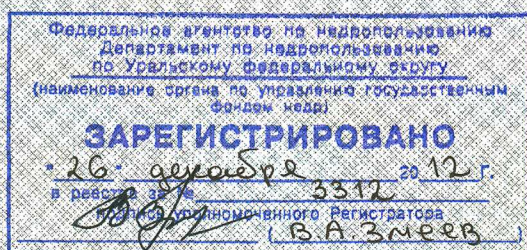 Федеральное агентство по недропользованию
Департамент по недропользованию
по Уральскому федеральному округу
(наименование органа по управлению государственным
фондом недр)
ЗАРЕГИСТРИРОВАНО
"26" декабря 2012 г.
в реестре за № 3312
подпись уполномоченного Регистратора
(В.А.Змеев)